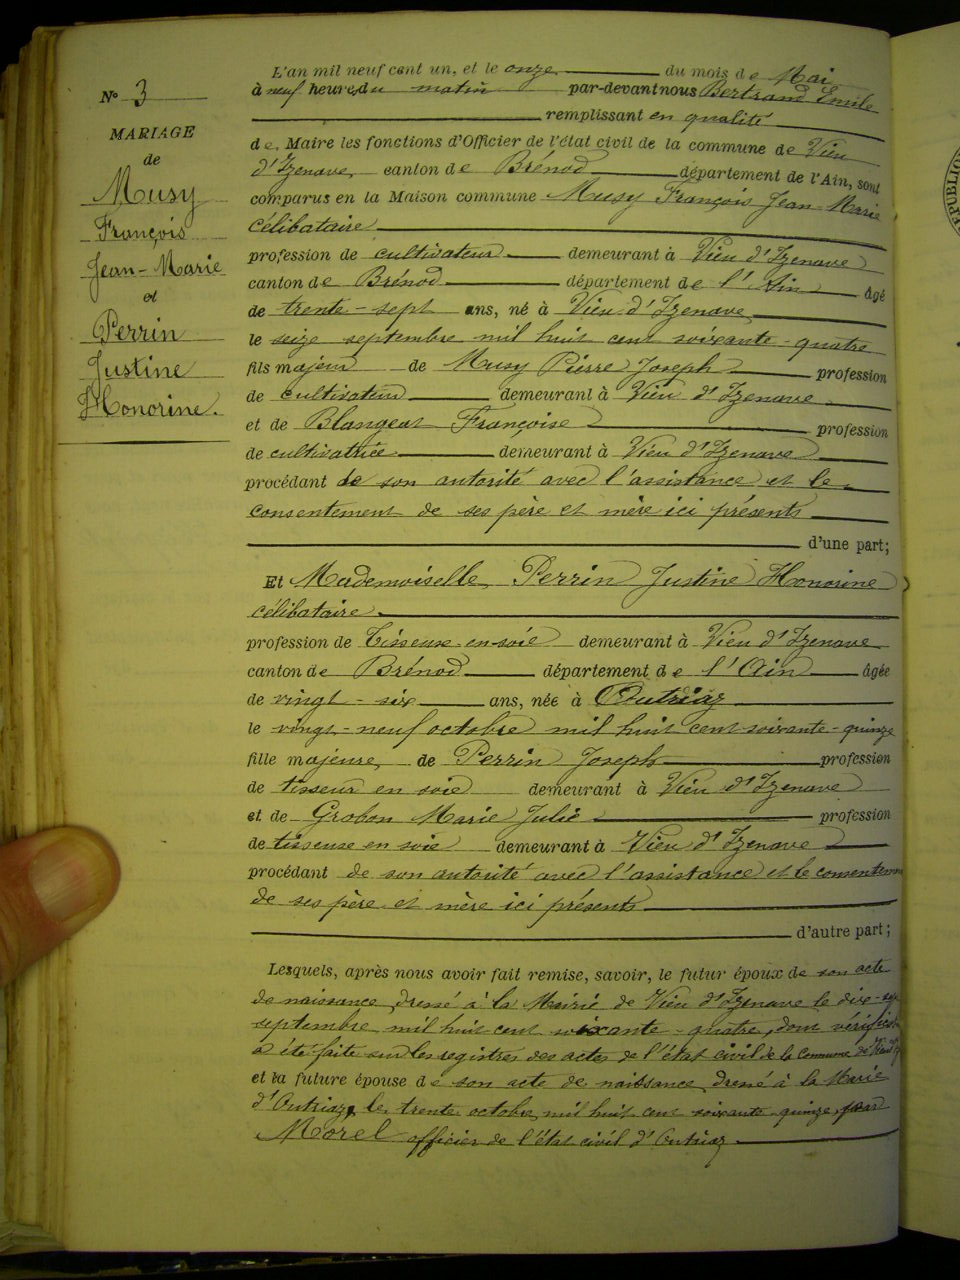 N° 3
MARIAGE
de
Musy
François
Jean-Marie
et
Perrin
Justine
Honorine.
L'an mil neuf cent un, et le onze du mois de Mai
à neuf heures du matin par-devant nous Bertrand Emile
remplissant en qualité
de Maire les fonctions d'Officier de l'état civil de la commune de Vieu
d'Izenave canton de Brénod département de l'Ain, sont
comparus en la Maison commune Musy François Jean-Marie
célibataire
profession de cultivateur demeurant à Vieu d'Izenave
canton de Brénod département de l'Ain âgé
de trente-sept ans, né à Vieu d'Izenave
le seize septembre mil huit cent soixante-quatre
fils majeur de Musy Pierre Joseph profession
de cultivateur demeurant à Vieu d'Izenave
et de Blangeat Françoise profession
de cultivatrice demeurant à Vieu d'Izenave
procédant de son autorité avec l'assistance et le
consentement de ses père et mère ici présents
d'une part;
Et Mademoiselle Perrin Justine Honorine
célibataire.
profession de Tisseuse-en-soie demeurant à Vieu d'Izenave
canton de Brénod département de l'Ain âgée
de vingt-six ans, née à Outriaz
le vingt-neuf octobre mil huit cent soixante-quinze
fille majeure, de Perrin Joseph profession
de tisseur en soie demeurant à Vieu d'Izenave
et de Grobon Marie Julie profession
de tisseuse en soie demeurant à Vieu d'Izenave
procédant de son autorité avec l'assistance et le
de ses père et mère ici présents
d'autre part;
Lesquels, après nous avoir fait remise, savoir, le futur époux de son acte
de naissance, dressé à la Mairie de Vieu d'Izenave le
septembre mil huit cent soixante-quatre, dont
a été faite sur les registres des actes de l'état civil de la Commune de
et la future épouse de son acte de naissance dressé à la Marie
d'Outriaz, le trente octobre mil huit cent soixante-quinze par
Morel officier de l'état civil d'Outriaz